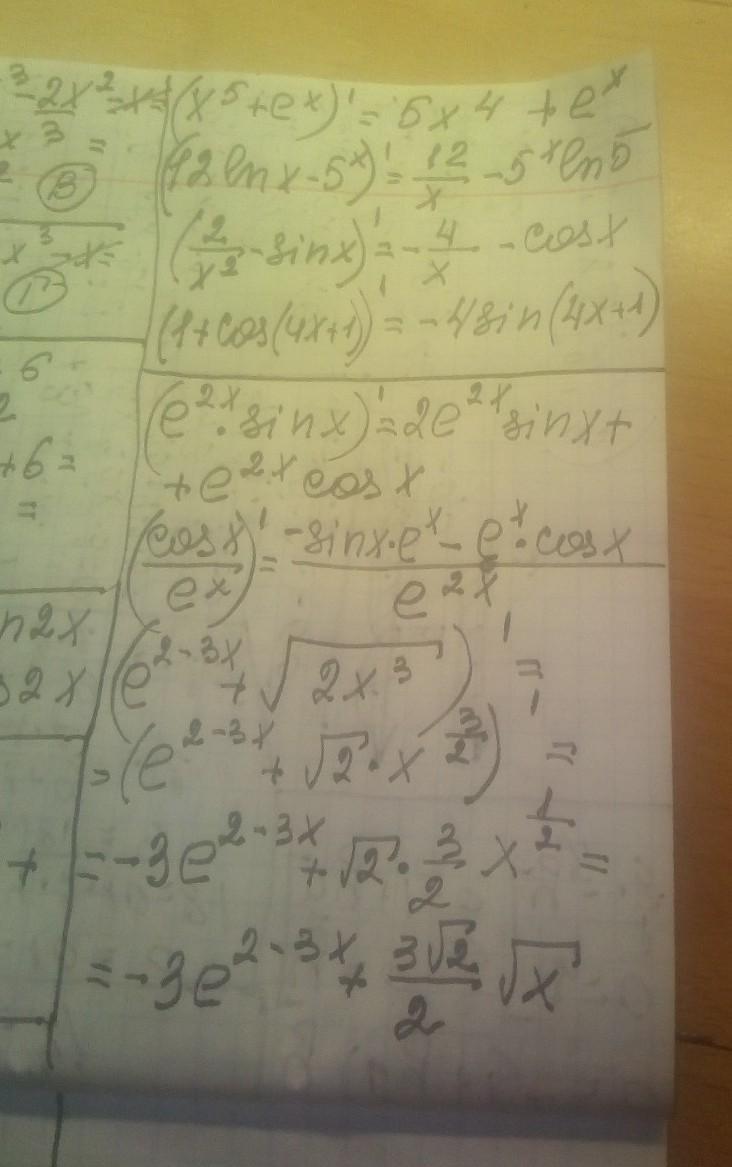 ³ - 2x² = x =
x 3 =
2 В
x³ - x =
Г
6
2
+6 =
=
n2x
s2x
+
(x⁵ + eˣ)' = 5x⁴ + eˣ
(12lnx - 5ˣ)' = 12/x - 5ˣ ln5
(2/x² - sinx)' = - 4/x - cosx
(1 + cos(4x+1))' = -4sin(4x+1)
(e²ˣ · sinx)' = 2e²ˣ sinx +
+ e²ˣ cosx
(cosx/eˣ)' = (-sinx·eˣ - eˣ·cosx)/e²ˣ
(e^(2-3x) + √(2x³))' =
= (e^(2-3x) + √2 · x^(3/2))' =
= -3e^(2-3x) + √2 · 3/2 x^(1/2) =
= -3e^(2-3x) + 3√2/2 √x